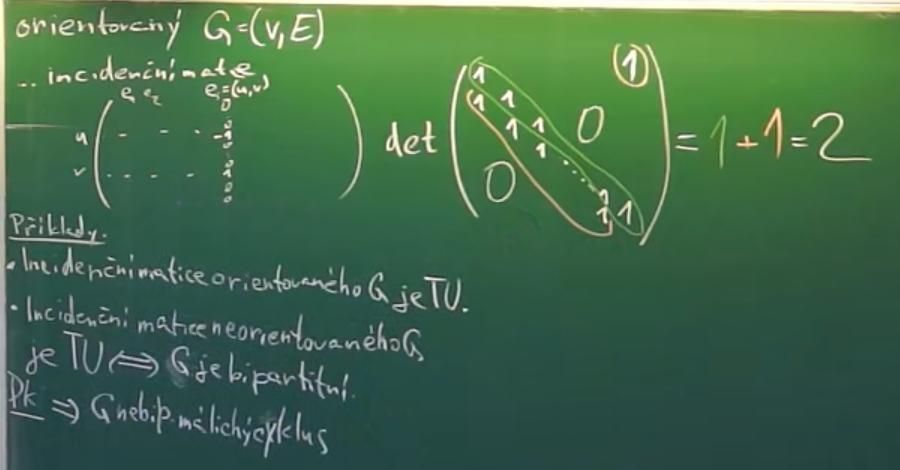 orientovaný G=(V,E)
... incidenční mat
e₁ e₂ e=(u,v)
0
0
u - . . . -1
0
v . . . . 1
0
0
det ( 1 1 1 1 1 1 1 0 0 1 1 1 ) = 1+1=2
Příklady.
• Incidenční matice orientovaného G je TU.
• Incidenční matice neorientovaného G
je TU ⟺ G je bipartitní.
Dk ⇒ G nebip. má lichý cyklus